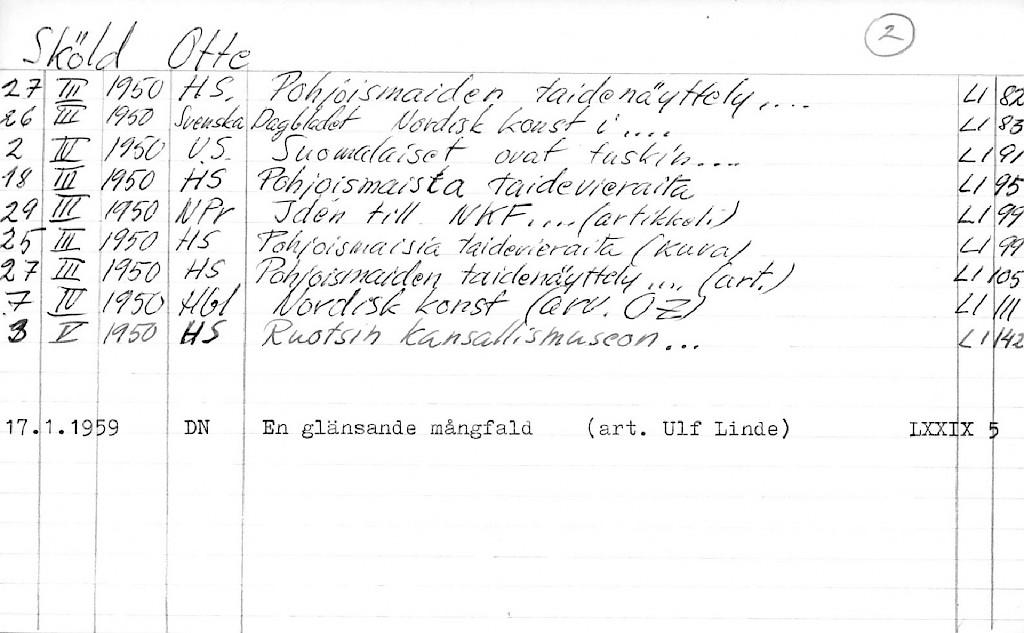 Sköld Otte 2
27 III 1950 HS. Pohjoismaiden taidenäyttely.... LI 82
26 III 1950 Svenska Dagbladet Nordisk konst i .... LI 83
2 IV 1950 U.S. Suomalaiset ovat tuskin.... LI 91
18 III 1950 HS Pohjoismaista taidevieraita LI 95
29 III 1950 NPr Idén till NKF....(artikkeli) LI 99
25 III 1950 HS Pohjoismaisia taidevieraita (kuva) LI 99
27 III 1950 HS Pohjoismaiden taidenäyttely.... (art.) LI 105
7 IV 1950 Hbl Nordisk konst (arv. ÖZ) LI 111
3 V 1950 HS Ruotsin kansallismuseon... LI 142
17.1.1959 DN En glänsande mångfald (art. Ulf Linde) LXXIX 5